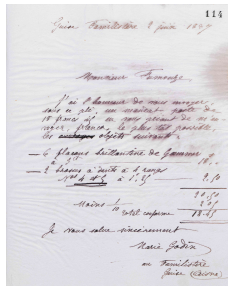 114
Guise Familistère 2 juin 1899
Monsieur Fumouze
J'ai l'honneur de vous envoyer,
sous ce pli, un mandat poste de
18 francs 45 en vous priant de m'en-
voyer, franco, le plus tôt possible,
les objets suivants :
6 flacons brillantine de
2 brosses à dents à 4 rangs
2.50
20.50
Moins 1/10 2.05
total conforme 18.45
Je vous salue sincèrement
Marie Godin
au Familistère
Guise (Aisne)